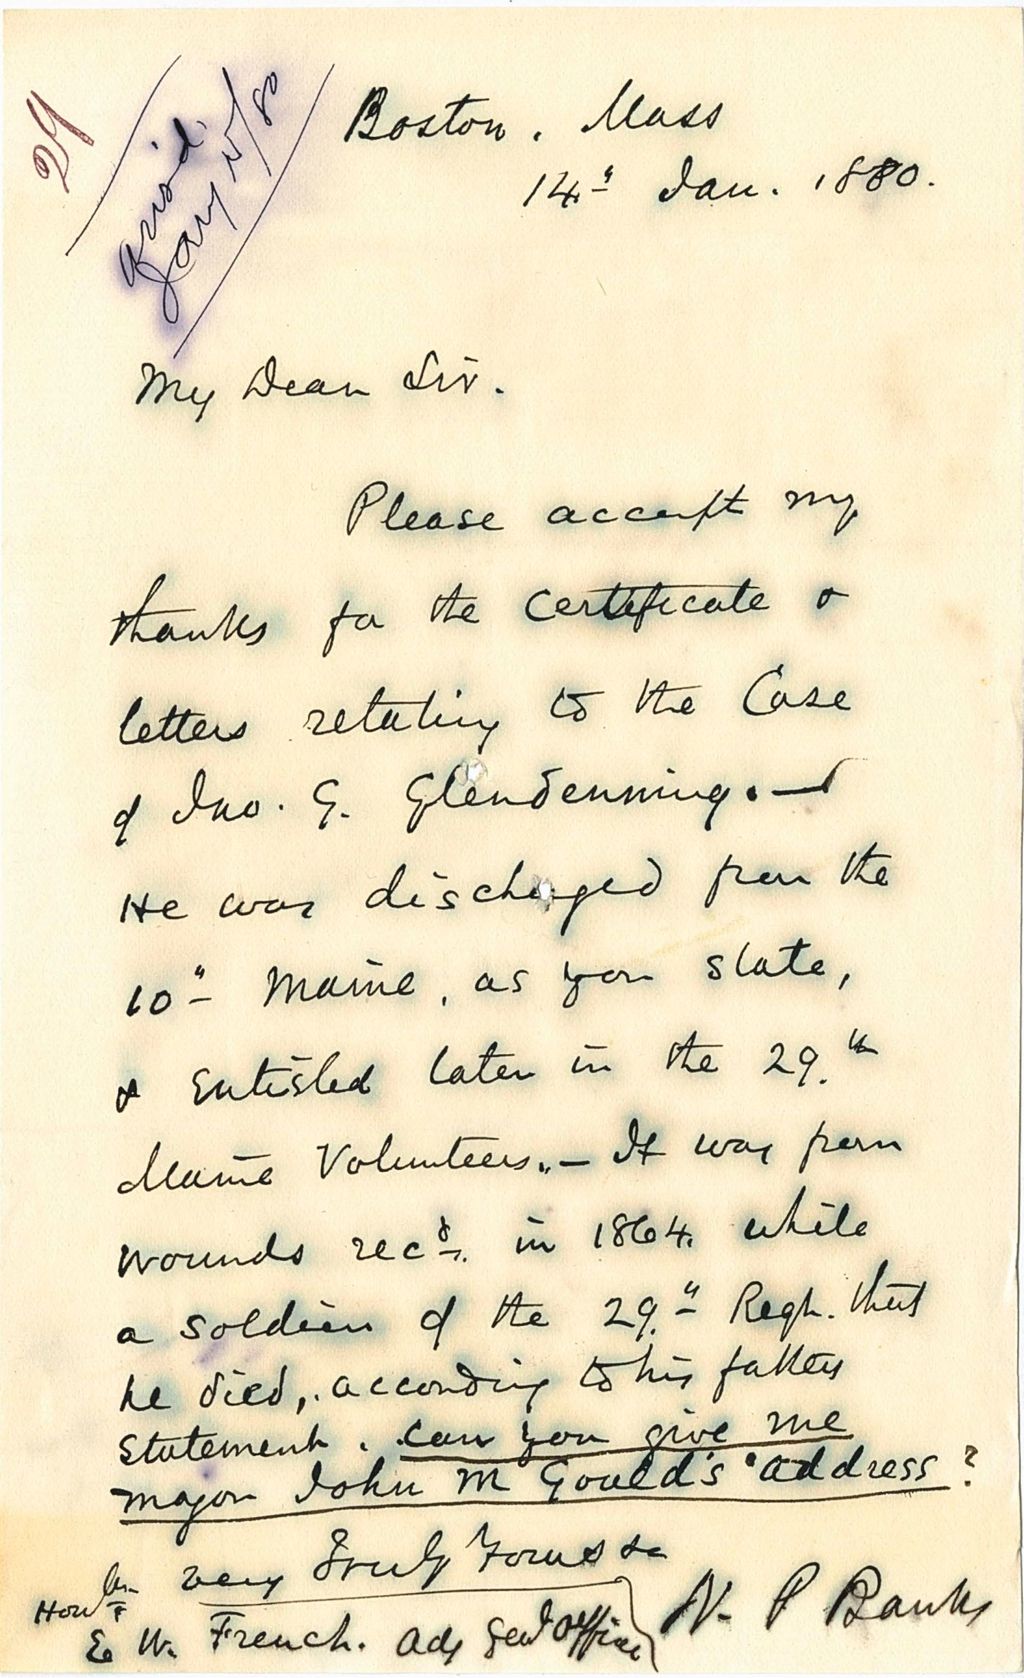 29
Ans'd.
Jany 15/80
Boston, Mass
14" Jan. 1880.
My Dear Sir.
Please accept my
thanks for the Certificate &
letters relating to the Case
of Jno. G. Glendenning. —
He was discharged from the
10" Maine, as you state,
& Enlisted later in the 29.th
Maine Volunteers. — It was from
wounds recd. in 1864. while
a soldier of the 29." Regt. that
he died, according to his fathers
statement. Can you give me
major John M Gould's address?
very Truly Yours &c
N. P. Banks
Hon
E W. French. Adj Genl Office